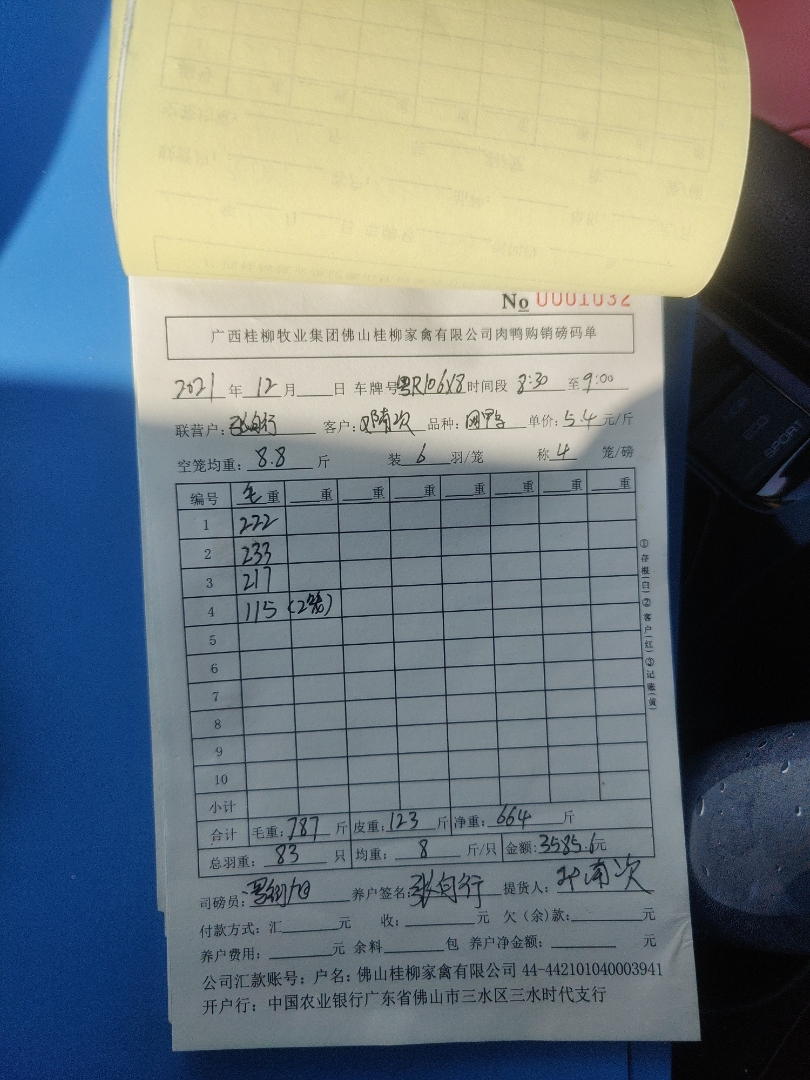 No 0001032
广西桂柳牧业集团佛山桂柳家禽有限公司肉鸭购销磅码单
2021 年 12 月 日 车牌号 粤R106X8 时间段 8:30 至 9:00
联营户: 张自行 客户: 品种: 单价: 5.4 元/斤
空笼均重: 8.8 斤 装 6 羽/笼 称 4 笼/磅
编号 毛重 重 重 重 重 重 重 重
1 222
2 233
3 217
4 115 (2笼)
5
6
7
8
9
10
小计
合计 毛重: 787 斤 皮重: 123 斤 净重: 664 斤
总羽重: 83 只 均重: 8 斤/只 金额: 3585.6元
司磅员: 养户签名: 张自行 提货人:
付款方式: 汇 元 收: 元 欠(余)款: 元
养户费用: 元 余料 包 养户净金额: 元
公司汇款账号: 户名: 佛山桂柳家禽有限公司 44-442101040003941
开户行: 中国农业银行广东省佛山市三水区三水时代支行
①存根(白)②客户(红)③记账(黄)